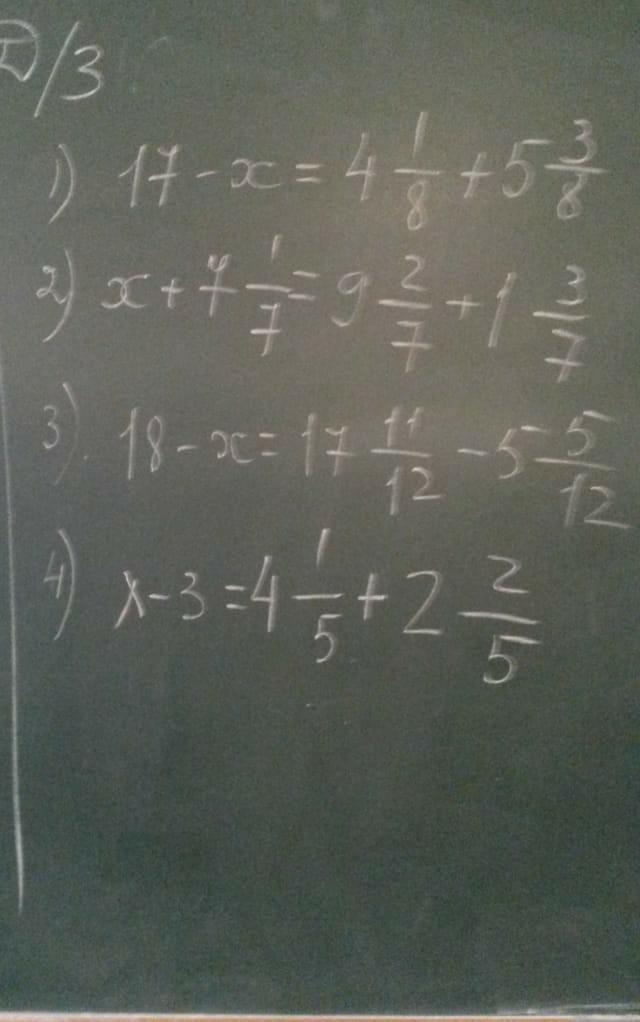 Д/З
1) 17 - x = 4 1/8 + 5 3/8
2) x + 7 1/7 = 9 2/7 + 1 3/7
3). 18 - x = 17 11/12 - 5 5/12
4) x - 3 = 4 1/5 + 2 2/5